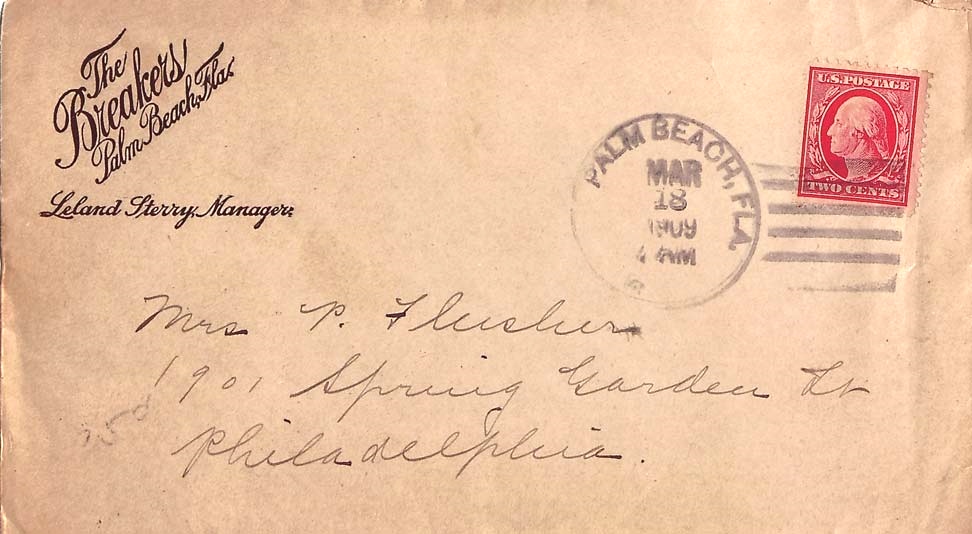 The
Breakers
Palm Beach, Fla.
Leland Sterry, Manager.
U.S. POSTAGE
TWO CENTS
PALM BEACH, FLA
MAR
18
1909
AM
Mrs P. Flusher
1901 Spring Garden St
Philadelphia.